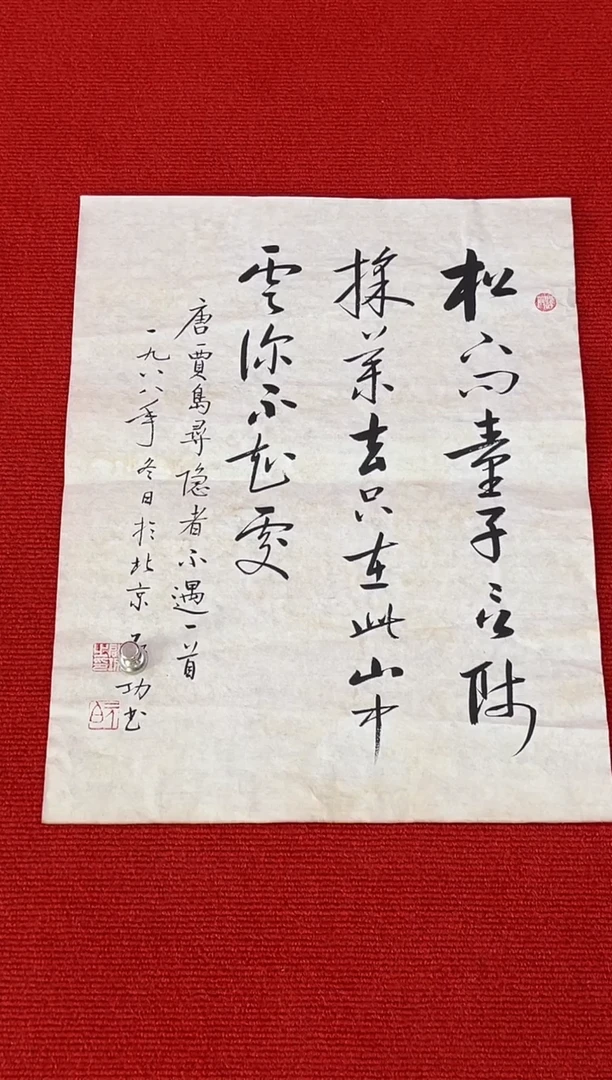 松下问童子言师
採藥去只在此山中
雲深不知處
唐賈島尋隐者不遇一首
一九八八年冬日於北京 功书
元白